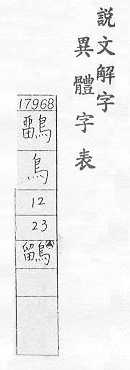 說文解字
異體字表
17968
鳥
12
23
鶹